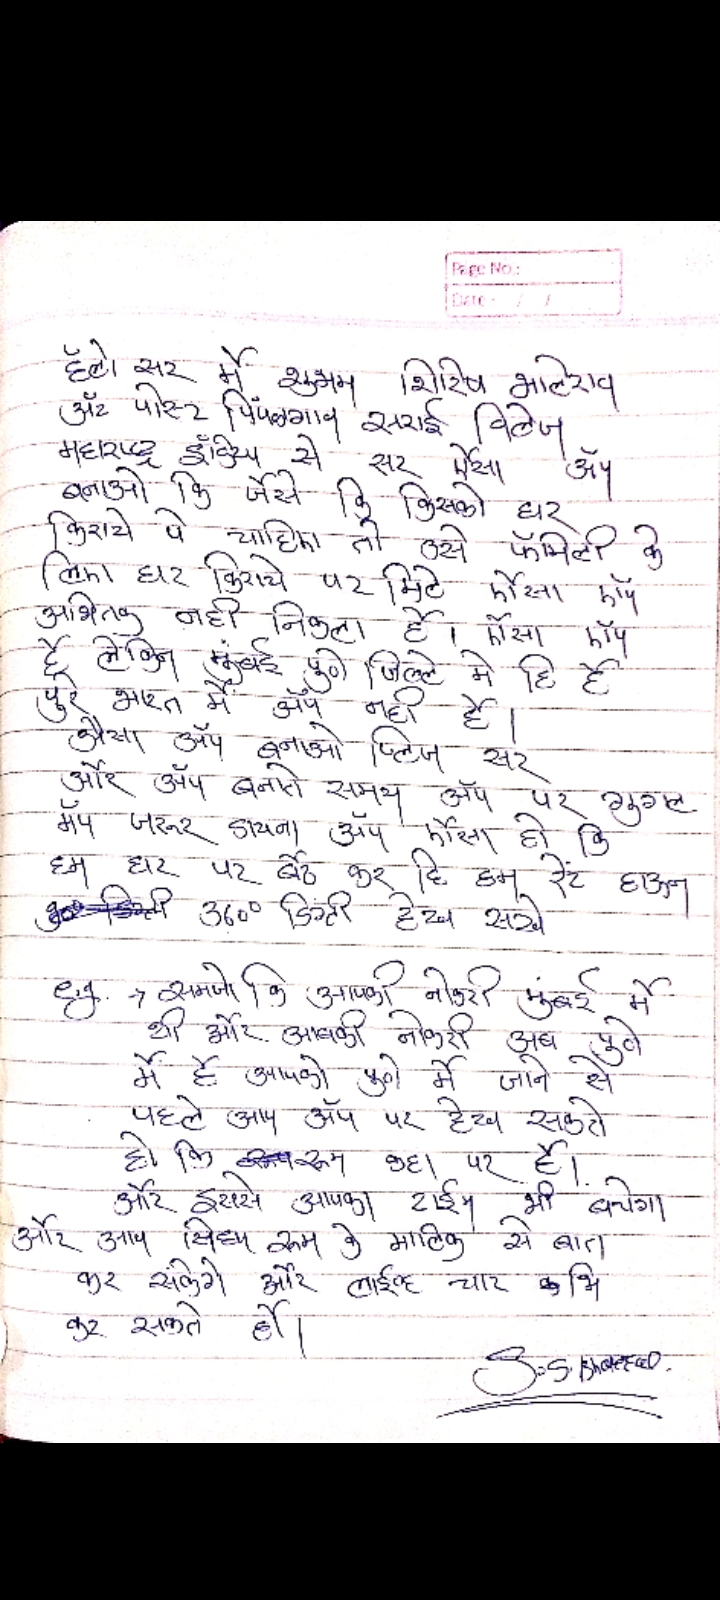 Page No.:
Date - / /
हॅलो सर मैं शुभम शिरिष भालेराव
ॲट पोस्ट पिंपळगाव सराई विलेज
महाराष्ट्र इंडिया से सर ऐसा ॲप
बनाओ कि जैसे कि किसको घर
किराये पे चाहिए तो उसे फॅमिली के
लिए घर किराये पर मिले ऐसा ॲप
अभितक नही निकला हैं। ऐसा ॲप
है लेकिन मुंबई पुणे जिल्ले मे हि है
पुरे भारत में ॲप नही हैं।
औसा ॲप बनाओ प्लिज सर
और ॲप बनाते समय ॲप पर गुगल
मॅप जरूर डालना ॲप ऐसा हो कि
हम घर पर बैठ कर हि रूम रेंट हाऊस
360° डिग्री देख सखे
e.g. → समजो कि आपकी नोकरी मुंबई में
थी और आपकी नोकरी अब पुणे
में है आपको पुणे में जाने से
पहले आप ॲप पर देख सकते
हो कि रूम कहा पर है।
और इससे आपका टाईम भी बचेगा
और आप सिधा रूम के मालिक से बात
कर सकेगे और लाईव्ह चॅट भि
कर सकते हो।
S.S. Bhalerao.